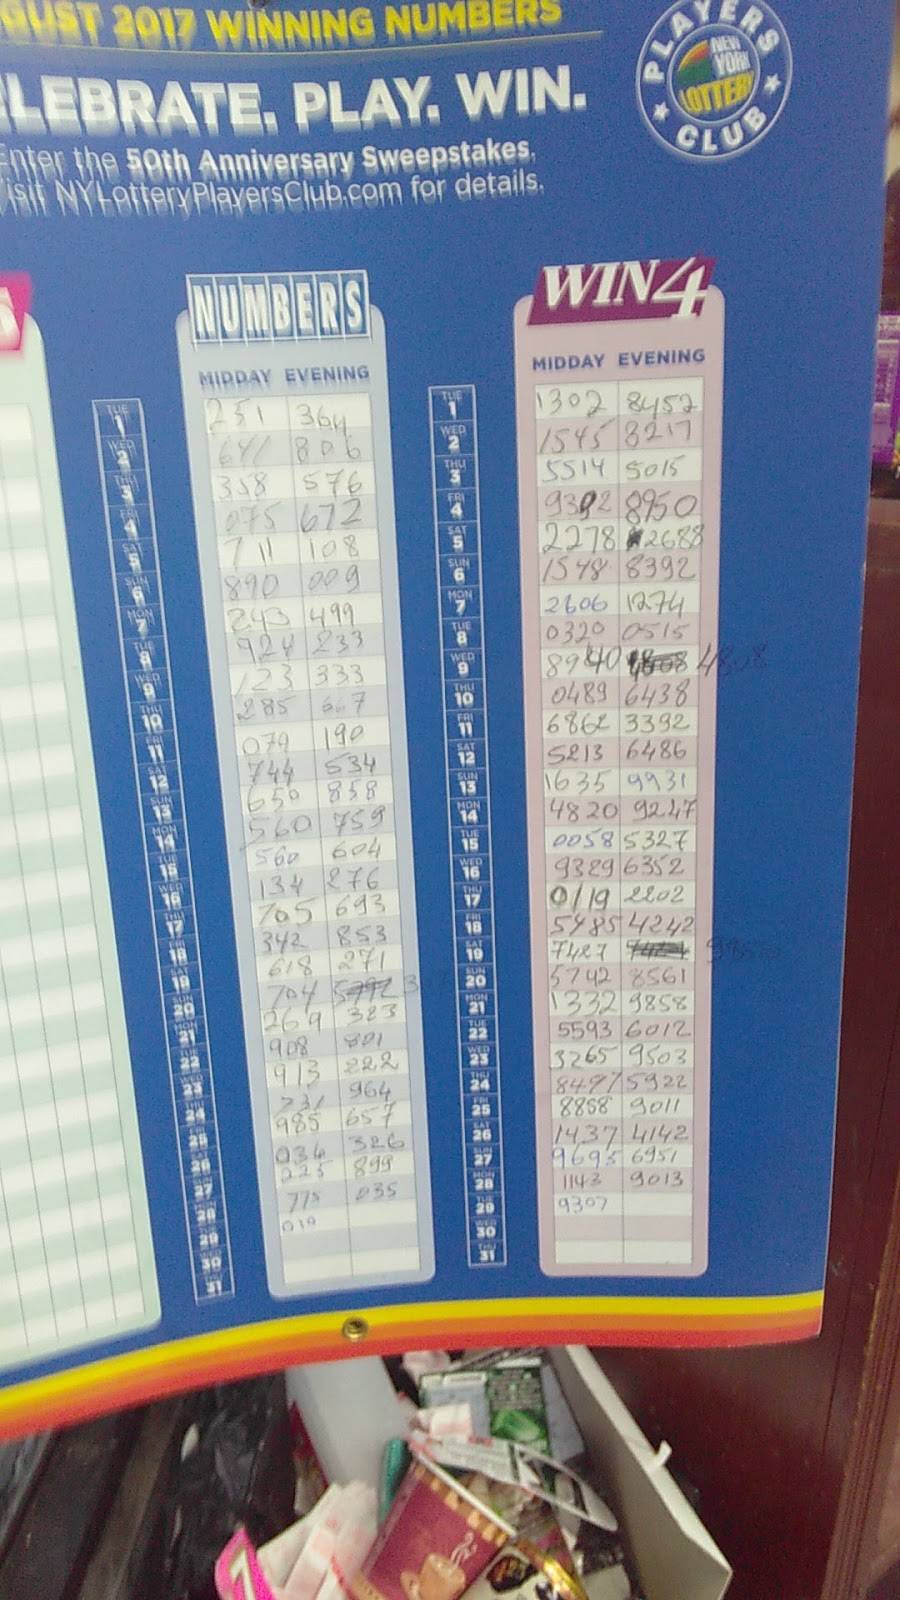 GUST 2017 WINNING NUMBERS
LEBRATE. PLAY. WIN.
Enter the 50th Anniversary Sweepstakes.
isit NYLotteryPlayersClub.com for details.
PLAYERS CLUB
NEW YORK LOTTERY
NUMBERS
MIDDAY EVENING
TUE 1 251 364
WED 2 641 806
THU 3 358 576
FRI 4 075 672
SAT 5 711 108
SUN 6 890 009
MON 7 243 499
TUE 8 924 233
WED 9 123 333
THU 10 285
FRI 11 079 190
SAT 12 744 534
SUN 13 650 858
MON 14 560 759
TUE 15 560 604
WED 16 134 276
THU 17 705 693
FRI 18 342 853
SAT 19 618 271
SUN 20 704
MON 21 269 383
TUE 22 908 801
WED 23 913 222
THU 24 731 964
FRI 25 985 657
SAT 26 034 326
SUN 27 225 899
MON 28 775 035
TUE 29 019
WED 30
THU 31
WIN4
MIDDAY EVENING
TUE 1 1302 8452
WED 2 1545 8217
THU 3 5514 5015
FRI 4 8950
SAT 5 2278 2688
SUN 6 1548 8392
MON 7 2606 1274
TUE 8 0320 0515
WED 9 8940 4808
THU 10 0489 6438
FRI 11 6862 3392
SAT 12 5213 6486
SUN 13 1635 9931
MON 14 4820 9247
TUE 15 0058 5327
WED 16 9389 6352
THU 17 0119 2202
FRI 18 5485 4242
SAT 19 7427
SUN 20 5742 8561
MON 21 1332 9858
TUE 22 5593 6012
WED 23 3265 9503
THU 24 8497 5922
FRI 25 8858 9011
SAT 26 1437 4142
SUN 27 9695 6951
MON 28 1143 9013
TUE 29 9307
WED 30
THU 31